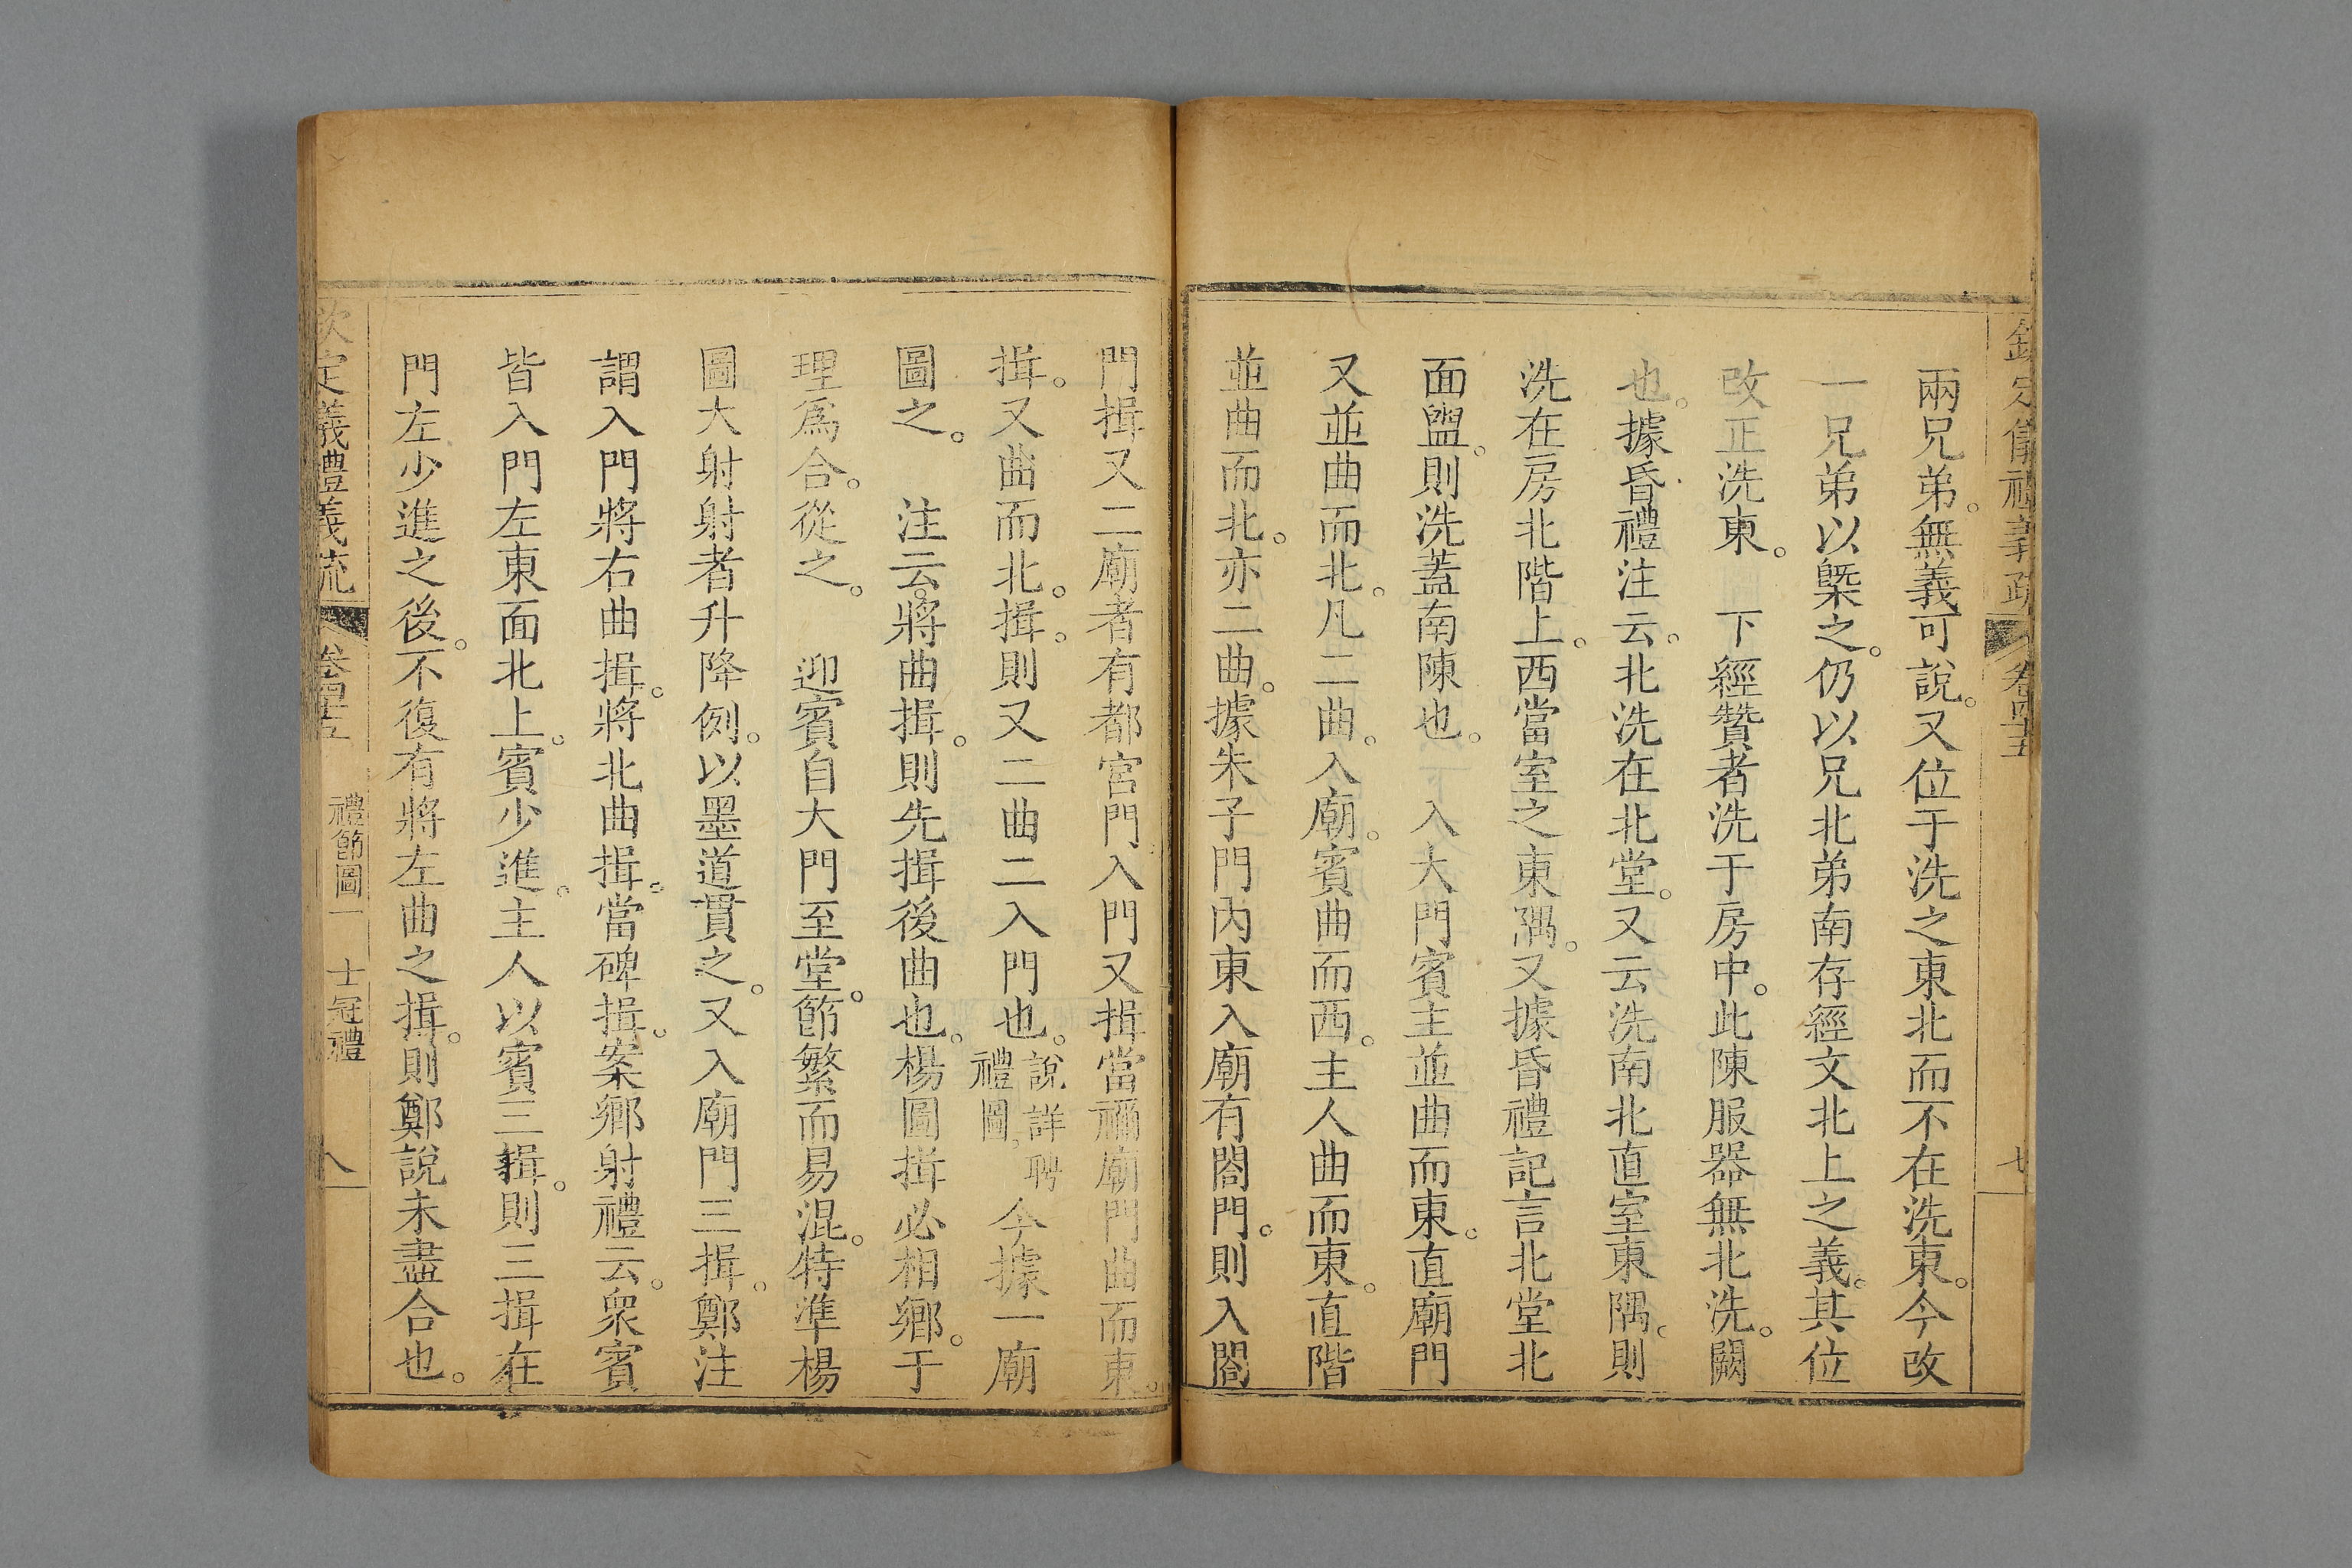 欽定儀禮義疏 卷四十五 七
兩兄弟。無義可說。又位于洗之東北而不在洗東。今改
一兄弟以槩之。仍以兄北弟南存經文北上之義。其位
改正洗東。 下經贊者洗于房中。此陳服器無北洗。闕
也。據昏禮注云。北洗在北堂。又云洗南北直室東隅。則
洗在房北階上。西當室之東隅。又據昏禮記言北堂北
面盥。則洗蓋南陳也。 入大門賓主並曲而東。直廟門
又並曲而北。凡二曲。入廟。賓曲而西。主人曲而東。直階
並曲而北。亦二曲。據朱子門內東入廟有閤門。則入閤
門揖又二廟者有都宮門入門又揖當禰廟門曲而東。
揖。又曲而北。揖。則又二曲二入門也。說詳聘禮圖。今據一廟
圖之。 注云。將曲揖。則先揖後曲也。楊圖揖必相鄉。于
理爲合。從之。 迎賓自大門至堂。節繁而易混。特準楊
圖大射射者升降例。以墨道貫之。又入廟門三揖。鄭注
謂入門將右曲揖。將北曲揖。當碑揖。案鄉射禮云。衆賓
皆入門左東面北上。賓少進。主人以賓三揖。則三揖在
門左少進之後。不復有將左曲之揖。則鄭說未盡合也。
欽定義禮義疏 卷四十五 禮節圖一 士冠禮 八